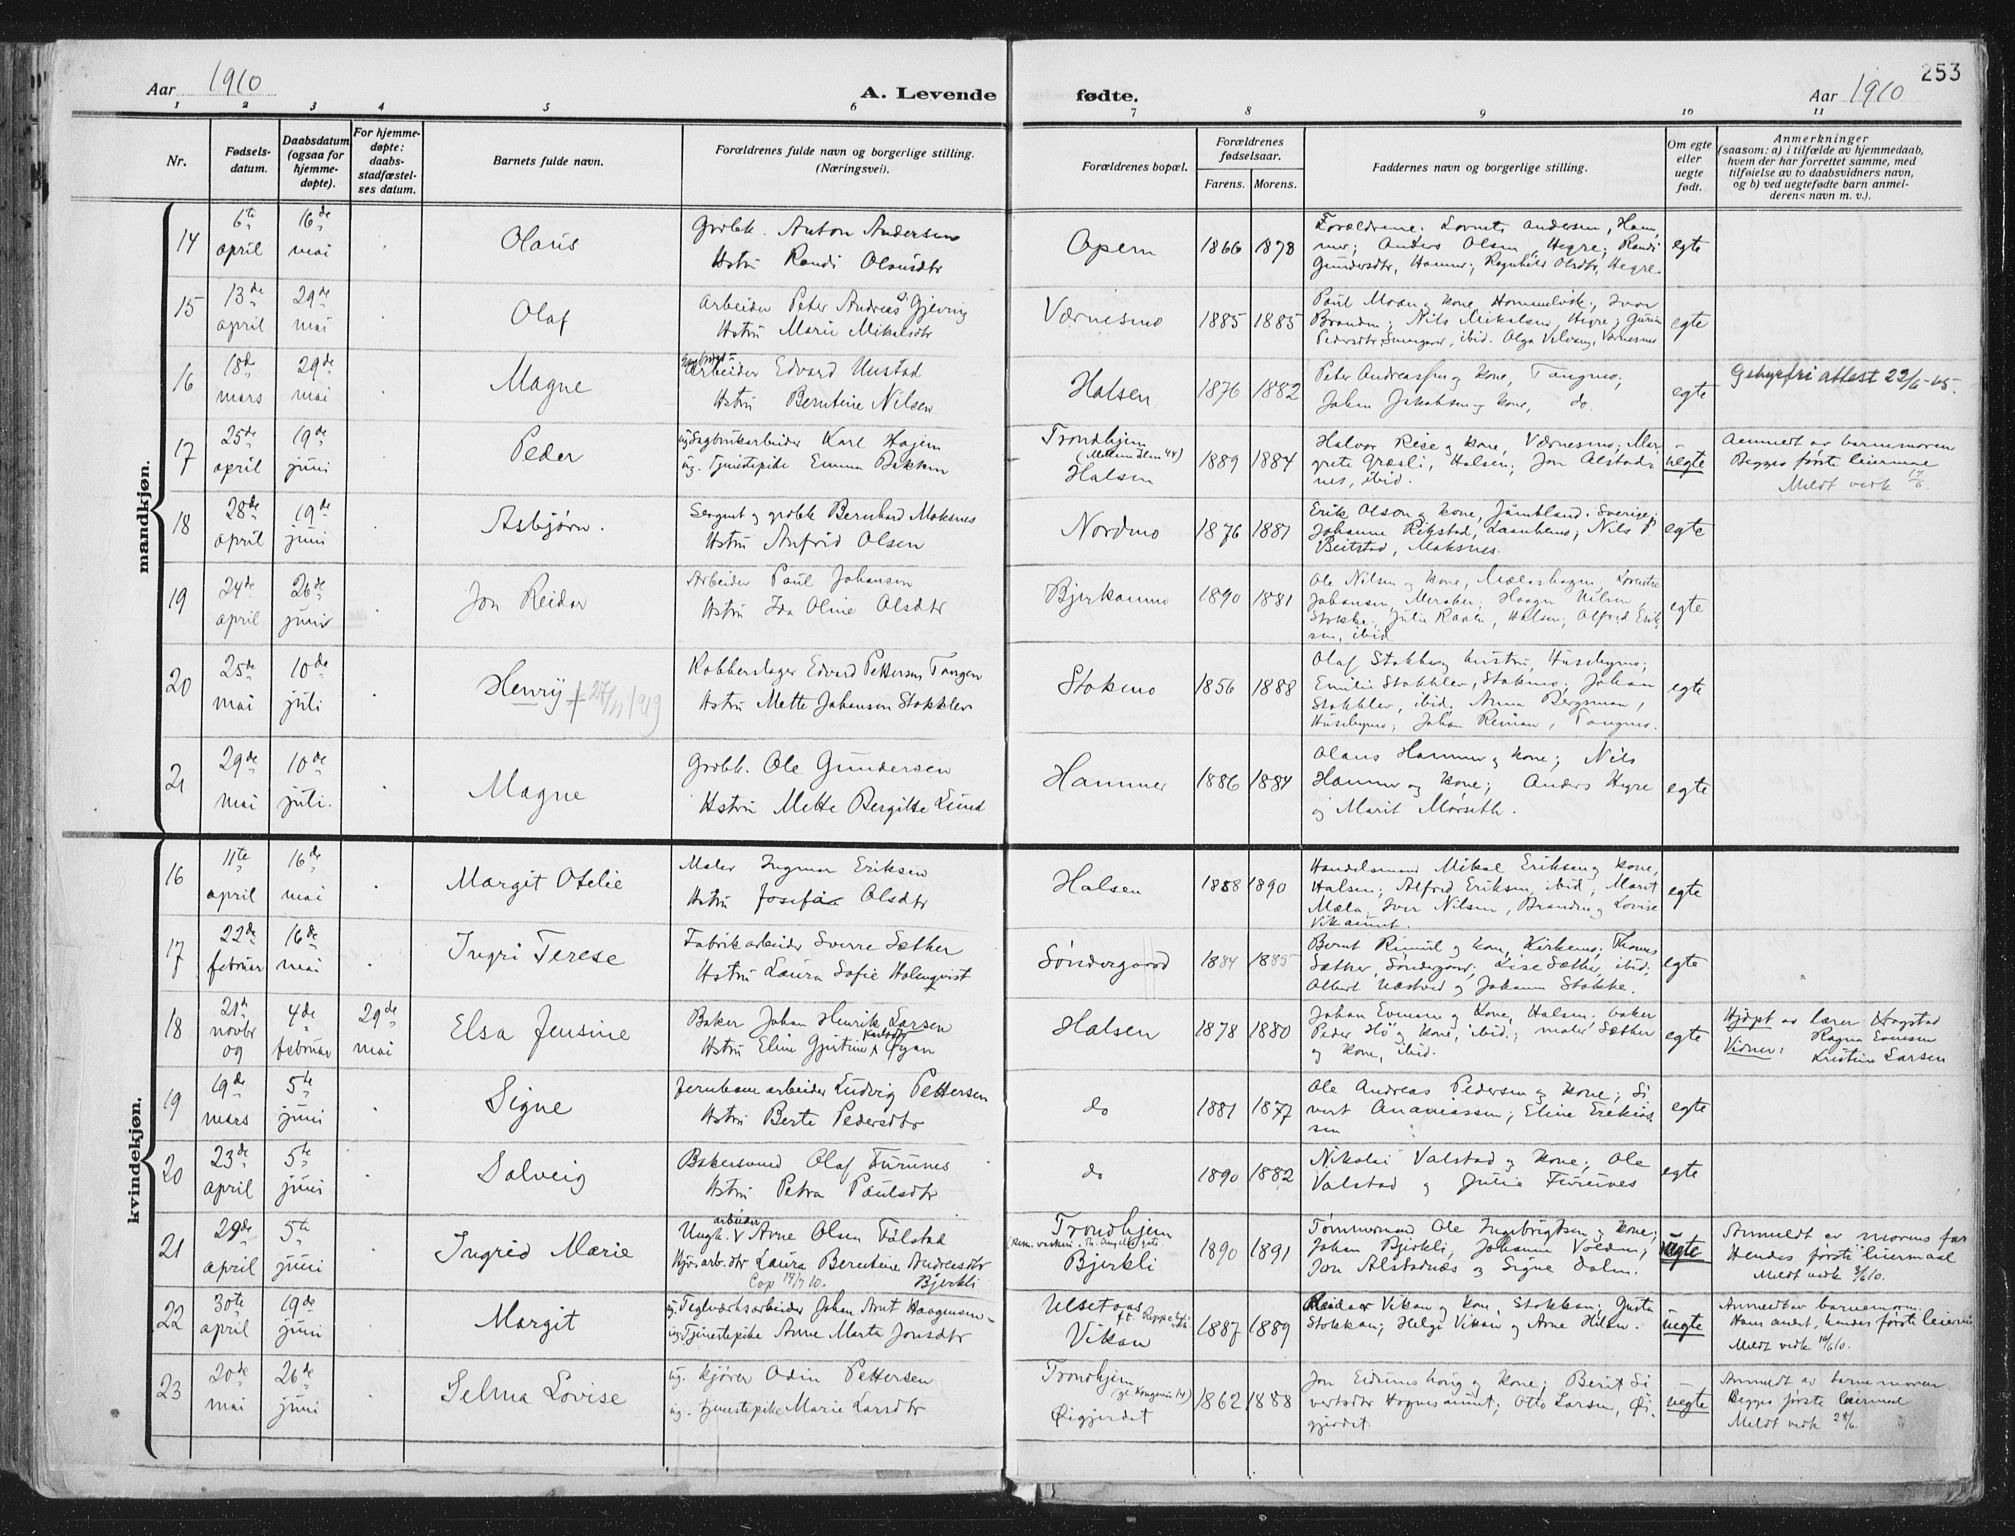 253
Aar 1910
A. Levende fødte.
Aar 1910
1 2 3 4 5 6 7 8 9 10 11
Nr.
Fødsels-
datum.
Daabsdatum
(ogsaa for
hjemme-
døpte).
For hjemme-
døpte:
daabs-
stadfæstel-
ses datum.
Barnets fulde navn.
Forældrenes fulde navn og borgerlige stilling.
(Næringsvei).
Forældrenes bopæl.
Forældrenes
fødselsaar.
Farens. Morens.
Faddernes navn og borgerlige stilling.
Om egte
eller
uegte
født.
Anmerkninger
(saasom: a) i tilfælde av hjemmedaab,
hvem der har forrettet samme, med
tilføielse av to daabsvidners navn,
og b) ved uegtefødte barn anmel-
derens navn m. v.).
mandkjøn.
14
6te april
16de mai
Olaus
Grdbk. Anton Andersen
Hstru Randi Olausdtr
Opem
1866 1878
Forældrene. Andersen, Ham
mer; Anders Olsen, Hegre; Randi
Gundersdtr, Hammer; Ragnhild Olsdtr, Hegre
egte
15
13de april
29de mai
Olaf
Arbeider Peter Andreas Gjeving
Hstru Marie Mikalsdtr
Værnesmo
1885 1885
Paul Moan og kone, Hommelvik; Ivar
Nils Mikalsen Hegre;
Pedersdtr ibid. Olga Værnesmo
egte
16
18de mars
29de mai
Magne
arbeider Edvard Unstad
Hstru Berntine Nilsen
Halsen
1876 1882
Peter Andreassen og kone, Tangmo;
Johan Jakobsen og kone, do.
egte
Gebyrfri attest 22/6-45.
17
25de april
19de juni
Peder
ug. Sagbrukarbeider Karl Hagen
ug. Tjenestepike Emma Bakken
Trondhjem
Halsen
1889 1884
Halvor Reise og kone, Værnesmo; Mar
grete Græsli, Halsen; Jon Alstad
nes, ibid.
uegte
Anmeldt av barnemoren
Begges første leiermaal
Meldt vedk
18
28de april
19de juni
Asbjørn.
Sergent og grdbk Bernhard Moksnes
Hstru Anfrid Olsen
Nordmo
1876 1881
Erik Olson og kone, Jämtland. Sverige;
Johanne Rikstad, Nils P
Beitstad, Moksnes.
egte
19
24de april
26de juni
Jon Reidar
Arbeider Paul Johansen
Hstru Ida Oline Olsdtr
Bjerkanmo
1890 1881
Ole Nilsen og kone, Mælashagen,
Johansen, Meraker; Haagen Nilsen,
Stokke; Julie Halsen; Alfred Erik
sen, ibid
egte
20
25de mai
10de juli
Henry
1919
Kobberslager Edvard Pettersen Tangen
Hstru Mette Johansen Stokkler
Stokmo
1856 1888
Olaf Stokke og hustru, Husebymo;
Emilie Stokkler, Stokmo; Johan
Stokkler, ibid. Anna Bergsman,
Husebymo; Johan Reinan, Tangmo.
egte
21
29de mai
10de juli.
Magne
Grdbk. Ole Gundersen
Hstru Mette Bergitte Lund
Hammer
1886 1884
Olaus Hammer og kone; Nils
Hammer og kone; Anders Hegre
og Marit Mørseth.
egte
kvindekjøn.
16
11te april
16de mai
Margit Otelie
Maler Ingmar Eriksen
Hstru Josefa Olsdtr
Halsen
1888 1890
Handelsmand Mikal Eriksen og kone,
Halsen; Alfred Eriksen, ibid; Marit
Mæla, Iver Nilsen, og Lovise
Vikanunt.
egte
17
22de februar
16de mai
Ingri Terese
Fabrikarbeider Sverre Sæther
Hstru Laura Sofie Holmqvist
Søndergaard
1884 1885
Bernt Rimul og kone, Kirkemo; Thomas
Sæther, Søndergaard; Lise Sæther, ibid;
Albert og Johanne Stokke.
egte
18
21de novbr 09
4de februar
29de mai
Elsa Jensine
Baker Johan Henrik Larsen
Hstru Eline Gjertine Øyan
Halsen
1878 1880
Johan Evensen og kone, Halsen. baker
Peder Hø og kone, ibid.; maler Sæther
og kone, ibid.
egte
Hjdpt av lærer Hogstad
Vidner: Ragna Evensen
Kristine Larsen
19
19de mars
5te juni
Signe
Jernbanearbeider Ludvig Pettersen
Hstru Berta Pedersdtr
do
1881 1877
Ole Andreas Pedersen og kone; Si
vert Ananiassen; Eline Erikias
sen
egte
20
23de april
5te juni
Solveig
Bakersvend Olaf Furunes
Hstru Petra Paulsdtr
do
1890 1882
Nikolai Valstad og kone; Ole
Valstad og Julie Furunes
egte
21
29de april
5te juni
Ingrid Marie
Ungk. arbeider Arne Olsen Følstad
Laura Berntine Andreasdtr
Cop 17/7 10. Bjerkli
Trondhjem
Bjerkli
1890 1891
Tømmermand Ole Ingebrigtsen og kone;
Johan Bjerkli, Johanne Volden;
Jon Alstadnæs og Signe Dalen.
uegte
Anmeldt av morens far
Hendes første leiermaal
Meldt vedk 3/6 10.
22
30te april
19de juni
Margit
ug. Teglværksarbeider Johan Arnt Haagensen
ug. Tjenestepike Anne Marta Jonsdtr
Ulsetaas
Vikan
1887 1889
Reidar Vikan og kone, Stokkan; Gusta
Stokkan; Helge Vikan og Arne Hilsen.
uegte
Anmeldt av barnemoren.
Hans andet, hendes første leierm
Meldt vedk 10/6 10.
23
20de mai
26de juni
Selma Lovise
ug. kjører Odin Pettersen
ug. tjenestepike Marie Larsdtr
Trondhjem
(gl. Kongevei 14)
Øigjerdet
1862 1888
Jon og kone; Berit Si
vertsdtr Hognesaunet; Otto Larsen, Øi-
gjerdet
uegte
Anmeldt av barnemoren
Begges første leiermaal
Meldt vedk 28/6.